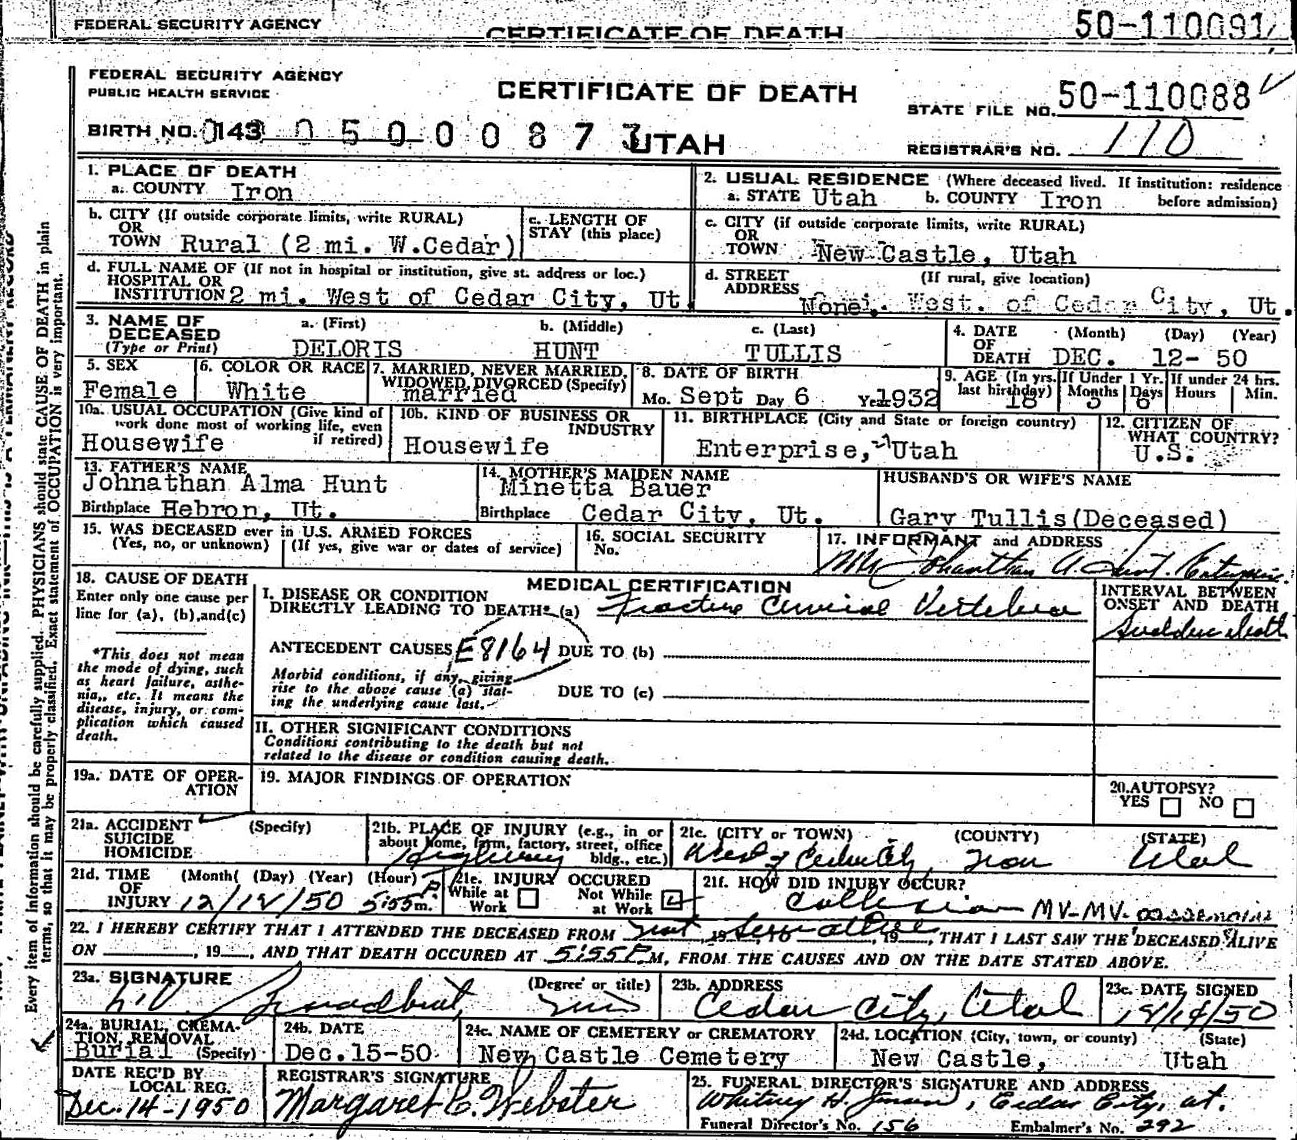 FEDERAL SECURITY AGENCY CERTIFICATE OF DEATH 50-110091
FEDERAL SECURITY AGENCY
PUBLIC HEALTH SERVICE
CERTIFICATE OF DEATH
STATE FILE NO. 50-110088
BIRTH NO. 143 0 5 0 0 0 8 7 3 UTAH
REGISTRAR'S NO. 110
1. PLACE OF DEATH
a. COUNTY Iron
2. USUAL RESIDENCE (Where deceased lived. If institution: residence before admission)
a. STATE Utah b. COUNTY Iron
b. CITY (If outside corporate limits, write RURAL)
OR
TOWN Rural (2 mi. W.Cedar)
c. LENGTH OF
STAY (this place)
c. CITY (if outside corporate limits, write RURAL)
OR
TOWN New Castle, Utah
d. FULL NAME OF (If not in hospital or institution, give st. address or loc.)
HOSPITAL OR
INSTITUTION 2 mi. West of Cedar City, Ut.
d. STREET (If rural, give location)
ADDRESS West. of Cedar City, Ut.
3. NAME OF DECEASED
(Type or Print)
a. (First) b. (Middle) c. (Last)
DELORIS HUNT TULLIS
4. DATE OF DEATH (Month) (Day) (Year)
DEC. 12- 50
5. SEX
Female
6. COLOR OR RACE
White
7. MARRIED, NEVER MARRIED,
WIDOWED, DIVORCED (Specify)
married
8. DATE OF BIRTH
Mo. Sept Day 6 Year 1932
9. AGE (In yrs. last birthday) 18
If Under 1 Yr. Months 3 Days 6
If under 24 hrs. Hours Min.
10a. USUAL OCCUPATION (Give kind of
work done most of working life, even
if retired)
Housewife
10b. KIND OF BUSINESS OR
INDUSTRY
Housewife
11. BIRTHPLACE (City and State or foreign country)
Enterprise, Utah
12. CITIZEN OF
WHAT COUNTRY?
U.S.
13. FATHER'S NAME
Johnathan Alma Hunt
Birthplace Hebron, Ut.
14. MOTHER'S MAIDEN NAME
Minetta Bauer
Birthplace Cedar City, Ut.
HUSBAND'S OR WIFE'S NAME
Gary Tullis(Deceased)
15. WAS DECEASED ever in U.S. ARMED FORCES
(Yes, no, or unknown) (If yes, give war or dates of service)
16. SOCIAL SECURITY
No.
17. INFORMANT and ADDRESS
Johnathan A. Hunt. Enterprise
18. CAUSE OF DEATH
Enter only one cause per
line for (a), (b),and(c)
*This does not mean
the mode of dying, such
as heart failure, asthe-
nia,, etc. It means the
disease, injury, or com-
plication which caused
death.
MEDICAL CERTIFICATION
I. DISEASE OR CONDITION
DIRECTLY LEADING TO DEATH* (a) Fracture Cervical Vertebra
ANTECEDENT CAUSES E8164 DUE TO (b)
Morbid conditions, if any, giving
rise to the above cause (a) stat-
ing the underlying cause last.
DUE TO (c)
II. OTHER SIGNIFICANT CONDITIONS
Conditions contributing to the death but not
related to the disease or condition causing death.
INTERVAL BETWEEN
ONSET AND DEATH
Sudden death
19a. DATE OF OPER-
ATION
19. MAJOR FINDINGS OF OPERATION
20. AUTOPSY?
YES NO
21a. ACCIDENT (Specify)
SUICIDE
HOMICIDE
21b. PLACE OF INJURY (e.g., in or
about home, farm, factory, street, office
bldg., etc.)
Highway
21c. (CITY or TOWN) (COUNTY) (STATE)
West of Cedar City Iron Utah
21d. TIME OF INJURY (Month( (Day) (Year) (Hour)
12/12/50 5:55 P m.
21e. INJURY OCCURED
While at Work Not While at Work
21f. HOW DID INJURY OCCUR?
Collision MV-MV-passenger
22. I HEREBY CERTIFY THAT I ATTENDED THE DECEASED FROM , 19 , 19 , THAT I LAST SAW THE DECEASED ALIVE
ON , 19 , AND THAT DEATH OCCURED AT 5:55P M, FROM THE CAUSES AND ON THE DATE STATED ABOVE.
23a. SIGNATURE (Degree or title)
23b. ADDRESS
Cedar City, Utah
23c. DATE SIGNED
12/14/50
24a. BURIAL, CREMA-
TION, REMOVAL
Burial (Specify)
24b. DATE
Dec.15-50
24c. NAME OF CEMETERY or CREMATORY
New Castle Cemetery
24d. LOCATION (City, town, or county) (State)
New Castle, Utah
DATE REC'D BY
LOCAL REG.
Dec. 14-1950
REGISTRAR'S SIGNATURE
Margaret C. Webster
25. FUNERAL DIRECTOR'S SIGNATURE AND ADDRESS
Whitney H. , Cedar City, Ut.
Funeral Director's No. 156 Embalmer's No. 292
Every item of information should be carefully supplied. PHYSICIANS should state CAUSE OF DEATH in plain
terms, so that it may be properly classified. Exact statement of OCCUPATION is very important.